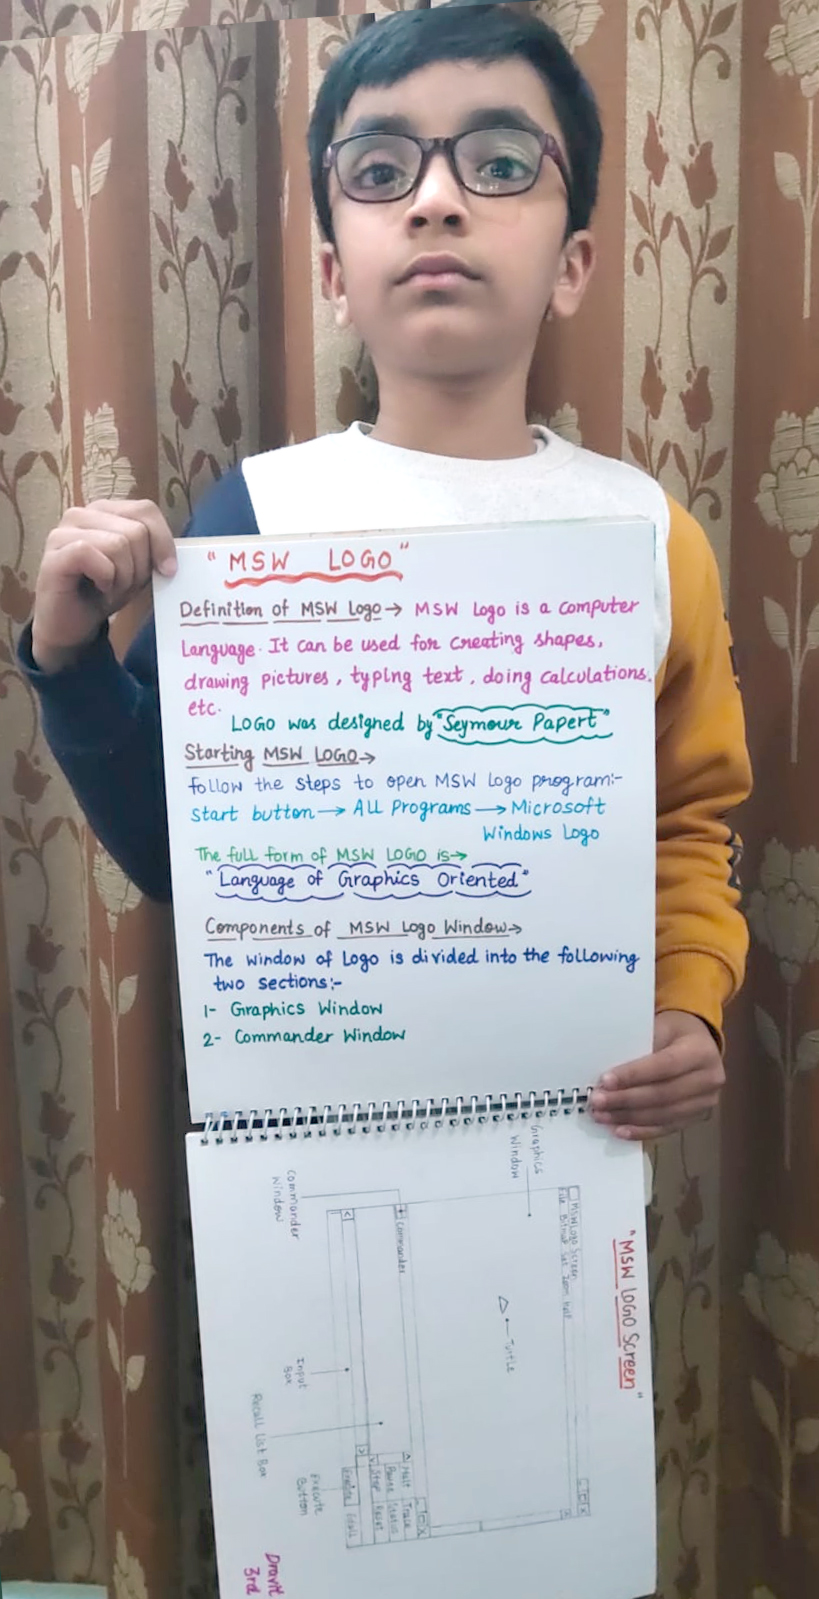 "MSW LOGO"
Definition of MSW Logo→ MSW Logo is a computer
Language. It can be used for creating shapes,
drawing pictures, typing text, doing calculations.
etc.
LOGO was designed by "Seymour Papert"
Starting MSW LOGO→
follow the steps to open MSW Logo program:-
Start button→ ALL Programs→ Microsoft
Windows Logo
The full form of MSW LOGO is→
"Language of Graphics Oriented"
Components of MSW Logo Window→
The window of Logo is divided into the following
two sections:-
1- Graphics Window
2- Commander Window
"MSW LOGO Screen"
MSWLogo Screen
File Bitmap Set Zoom Help
Graphics
Window
Turtle
Commander
Commander
Window
Halt Trace
Pause Status
Stop Reset
Input
Box
Recall List Box
Execute
Button
Dravit
3rd